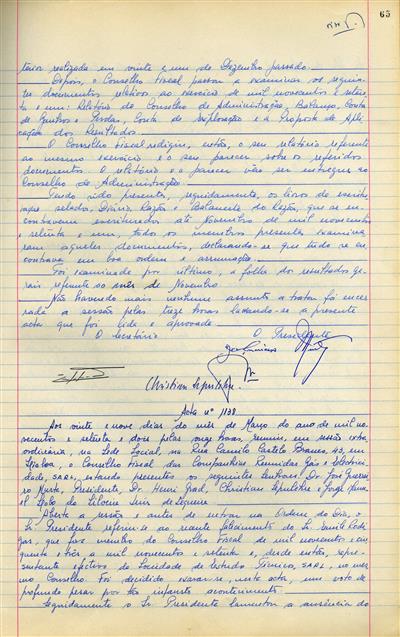 65
terior realizada em vinte e um de Dezembro passado.
Depois, o Conselho Fiscal passou a examinar os seguin-
tes documentos relativos ao exercício de mil novecentos e seten-
ta e um: Relatório do Conselho de Administração, Balanço, Conta
de Ganhos e Perdas, Conta de Exploração e a Proposta de Apli-
cação dos Resultados.
O Conselho Fiscal redigiu, então, o seu relatório referente
ao mesmo exercício e o seu parecer sobre os referidos
documentos. O relatório e o parecer vão ser entregues ao
Conselho de Administração.
Tendo sido presentes, seguidamente, os livros de escritu-
ração selados, Diário, Razão e Balancete do Razão, que se en-
contravam escriturados até Novembro de mil novecentos
e setenta e um, todos os membros presentes examina-
ram aqueles documentos, declarando-se que tudo se en-
contrava em boa ordem e arrumação.
Foi examinada por último, a folha dos resultados ge-
rais referente ao mês de Novembro.
Não havendo mais nenhum assunto a tratar foi encer-
rada a sessão pelas treze horas lavrando-se a presente
acta que foi lida e aprovada.
O Secretário O Presidente
Christian Sepulchre.
Acta nº 1138
Aos vinte e nove dias do mês de Março do ano de mil no-
vecentos e setenta e dois pelas onze horas, reuniu, em sessão extra-
ordinária, na Sede Social, na Rua Camilo Castelo Branco, 43, em
Lisboa, o Conselho Fiscal das Companhias Reunidas Gás e Electrici-
dade, SARL, estando presentes os seguintes senhores: Dr. José Guerrei-
ro Murta, Presidente, Dr. Henri Grad, Christian Sepulchre e Jorge Manu-
el
Aberta a sessão e antes de entrar na Ordem do Dia, o
Sr. Presidente referiu-se ao recente falecimento do Sr. Emile Rodi-
gas, que fora membro do Conselho Fiscal de mil novecentos e cin-
quenta e três a mil novecentos e setenta e, desde então, repre-
sentante efectivo da Sociedade de Estudos Técnicos, SARL, no mes-
mo Conselho. Foi decidido exarar-se, nesta acta, um voto de
profundo pesar por tão infausto acontecimento.
Seguidamente o Sr. Presidente lamentou a ausência do